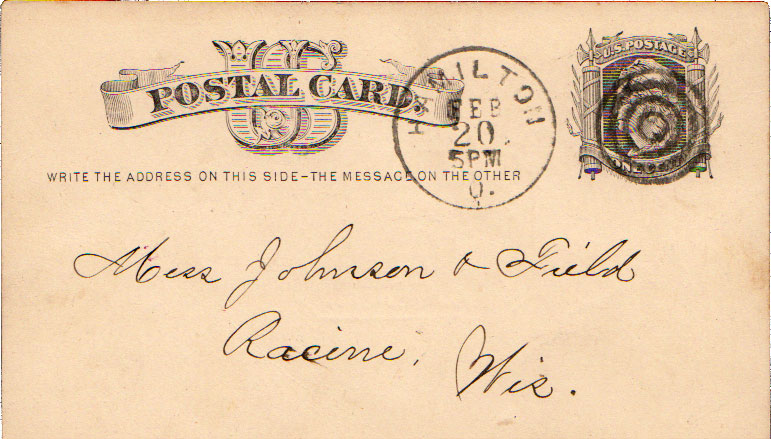 U.S. POSTAGE
POSTAL CARD.
FEB
20
5PM
O.
WRITE THE ADDRESS ON THIS SIDE-THE MESSAGE ON THE OTHER
Mess Johnson & Field
Racine,
Wis.